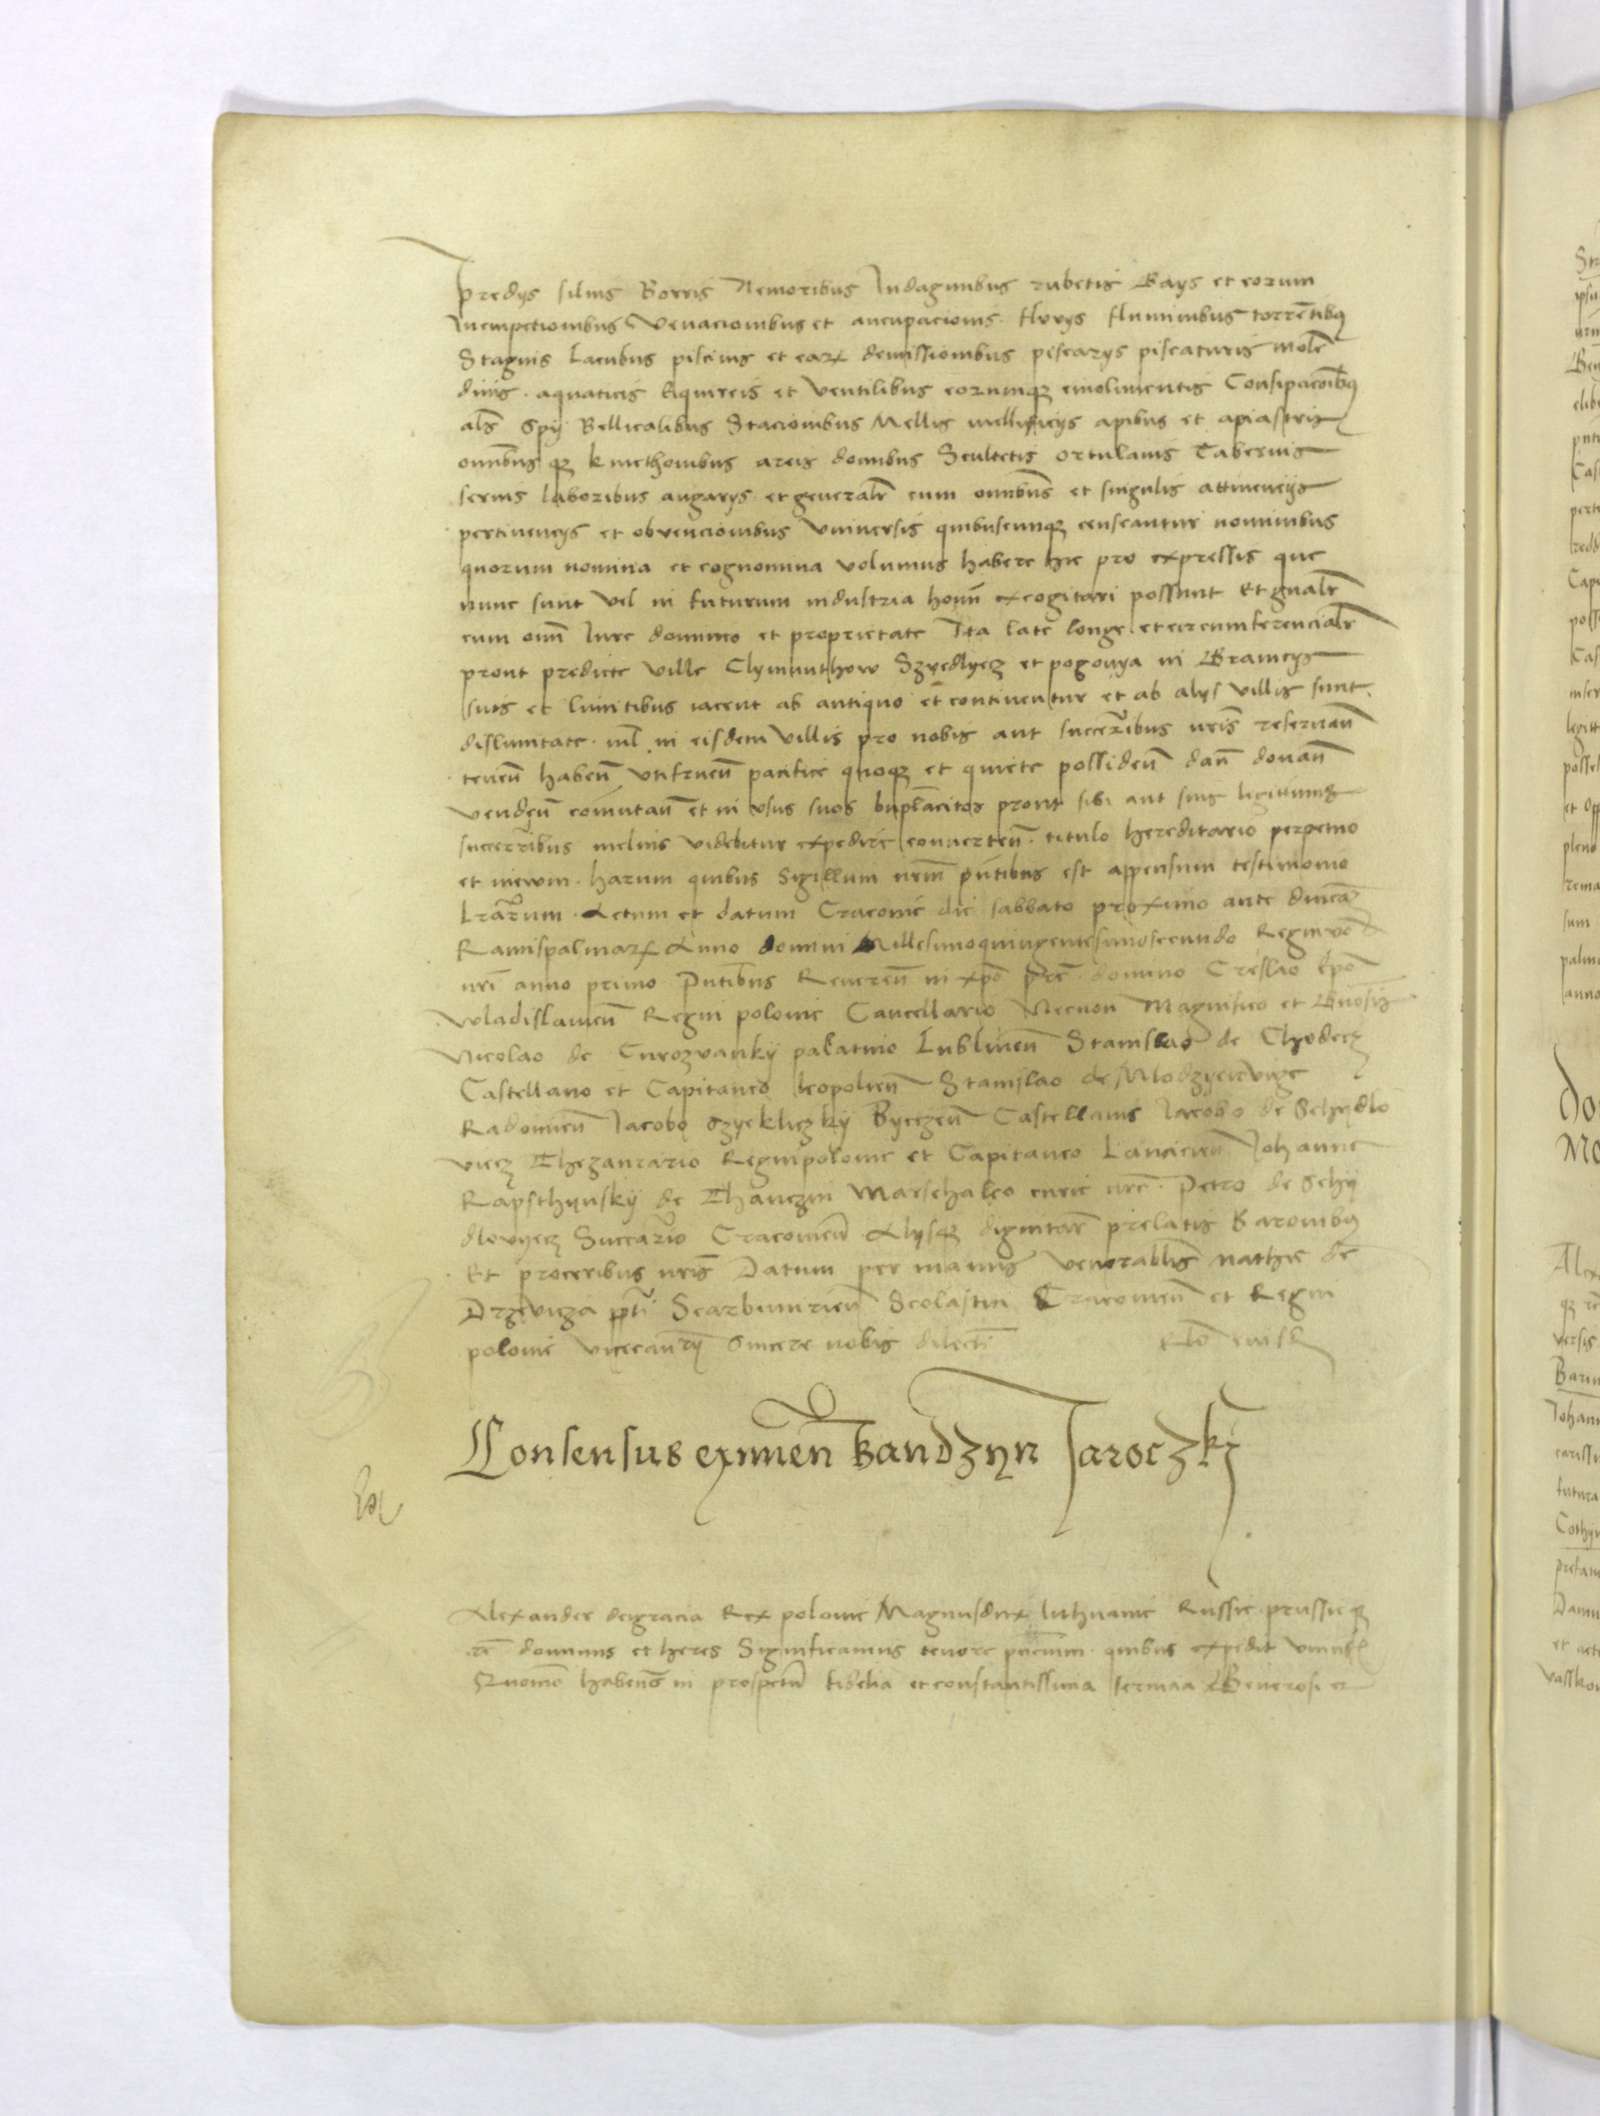 predijs silvis Borris Nemoribus Indaginibus rubetis Gays et eorum
Incumpetionibus Venacionibus et aucupacionis fluvijs fluminibus torrētibꝫ
Stagnis Lacubus piscinis et earꝝ dimissionibus piscarijs piscaturis molē
dinis aquaticis Equireis et Ventilibus eorumqꝫ emolimentis Consipacōibꝫ
als Spij Bellicalibus Stacionibus Mellis mellificijs apibus et apiastris
omnibus qꝫ kmethonibus areis domibus Scultetis ortulanis Tabernis
servis laboribus angarijs et generalr̄ cum omnibus et singulis attinencijs
pertinencijs et obvencionibus Vniversis quibuscunqꝫ censeantur nominibus
quorum nomina et cognomina volumus habere hic pro expressis que
nunc sunt vel in futurum industria homī excogitari possunt Et gn̄alr̄
cum omī Iure dominio et proprietate Ita late longe et circumferencialr̄
prout predicte ville Clymunthow Szyedlyecz et pogonya in Graniciis
suis et limitibus iacent ab antiquo et continentur et ab alijs villis sunt
dislimitate nil in eisdem villis pro nobis aut succoribus nr̄is reservan̄
tenen̄ haben̄ vtifruen̄ pacifice quoqꝫ et quiete possiden̄ dan̄ donan̄
venden̄ com̄utan̄ et in vsus suos bn̄placitos prout sibi aut suis ligitimis
succoribus melius videbitur expedire converten̄ titulo hereditario perpetuo
et inewm harum quibus Sigillum nrm̄ pn̄tibus est appensum testimonio
Lrārum Actum et datum Cracovie die sabbato proximo ante dn̄icā
Ramispalmarꝝ Anno domini Millesimoquingentesimosecundo Regni vō
nr̄i anno primo Pn̄tibus Reveren̄ in xpō pr̄e domino Creslao Epō
Wladislavien̄ Regni polonie Cancellario Necnon Magnifico et Gn̄osis
Nicolao de Curozvanky palatino Lublinen̄ Stanislao de Chodecz
Castellano et Capitaneo leopolien̄ Stanislao de Mlodzyeyevicze
Radomien̄ Iacobo Szyekliczky Byeczen̄ Castellanis Iacobo de Schydlo
viecz Thezaurario Regni polonie et Capitaneo Lancicien̄ Iohanne
Rapsthynsky de Thanczin Marschalco curie nr̄e Petro de Schy
dlovyecz Succario Cracovien̄ Alijsqꝫ dignitar̄ prelatis Baronibꝫ
Et proceribus nr̄is Datum per manus Venerablis mathie de
Drzevicza ppti Scarbimirien̄ Scolastici Cracovien̄ et Regni
polonie vicecan̄rij Sincere nobis dilecti Rlō eiusd
Consensus eximen̄ bandzyn Jaroczky
Alexander deigracia Rex polonie Magnusdux lithuanie Russie prussieqꝫ
rc̄ dominus et heres Significamus tenore pn̄cium quibus expedit vniūs
Quomō habentes in prospectu fidelia et constantissima servicia Generosi